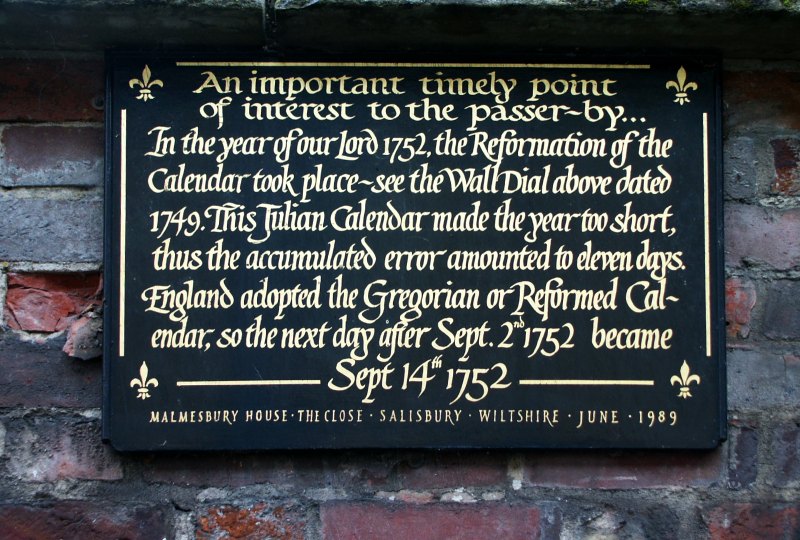 An important timely point
of interest to the passer-by...
In the year of our Lord 1752, the Reformation of the
Calendar took place - see the Wall Dial above dated
1749. This Julian Calendar made the year too short,
thus the accumulated error amounted to eleven days.
England adopted the Gregorian or Reformed Cal-
endar, so the next day after Sept. 2nd 1752 became
Sept 14th 1752
MALMESBURY HOUSE · THE CLOSE · SALISBURY · WILTSHIRE · JUNE · 1989